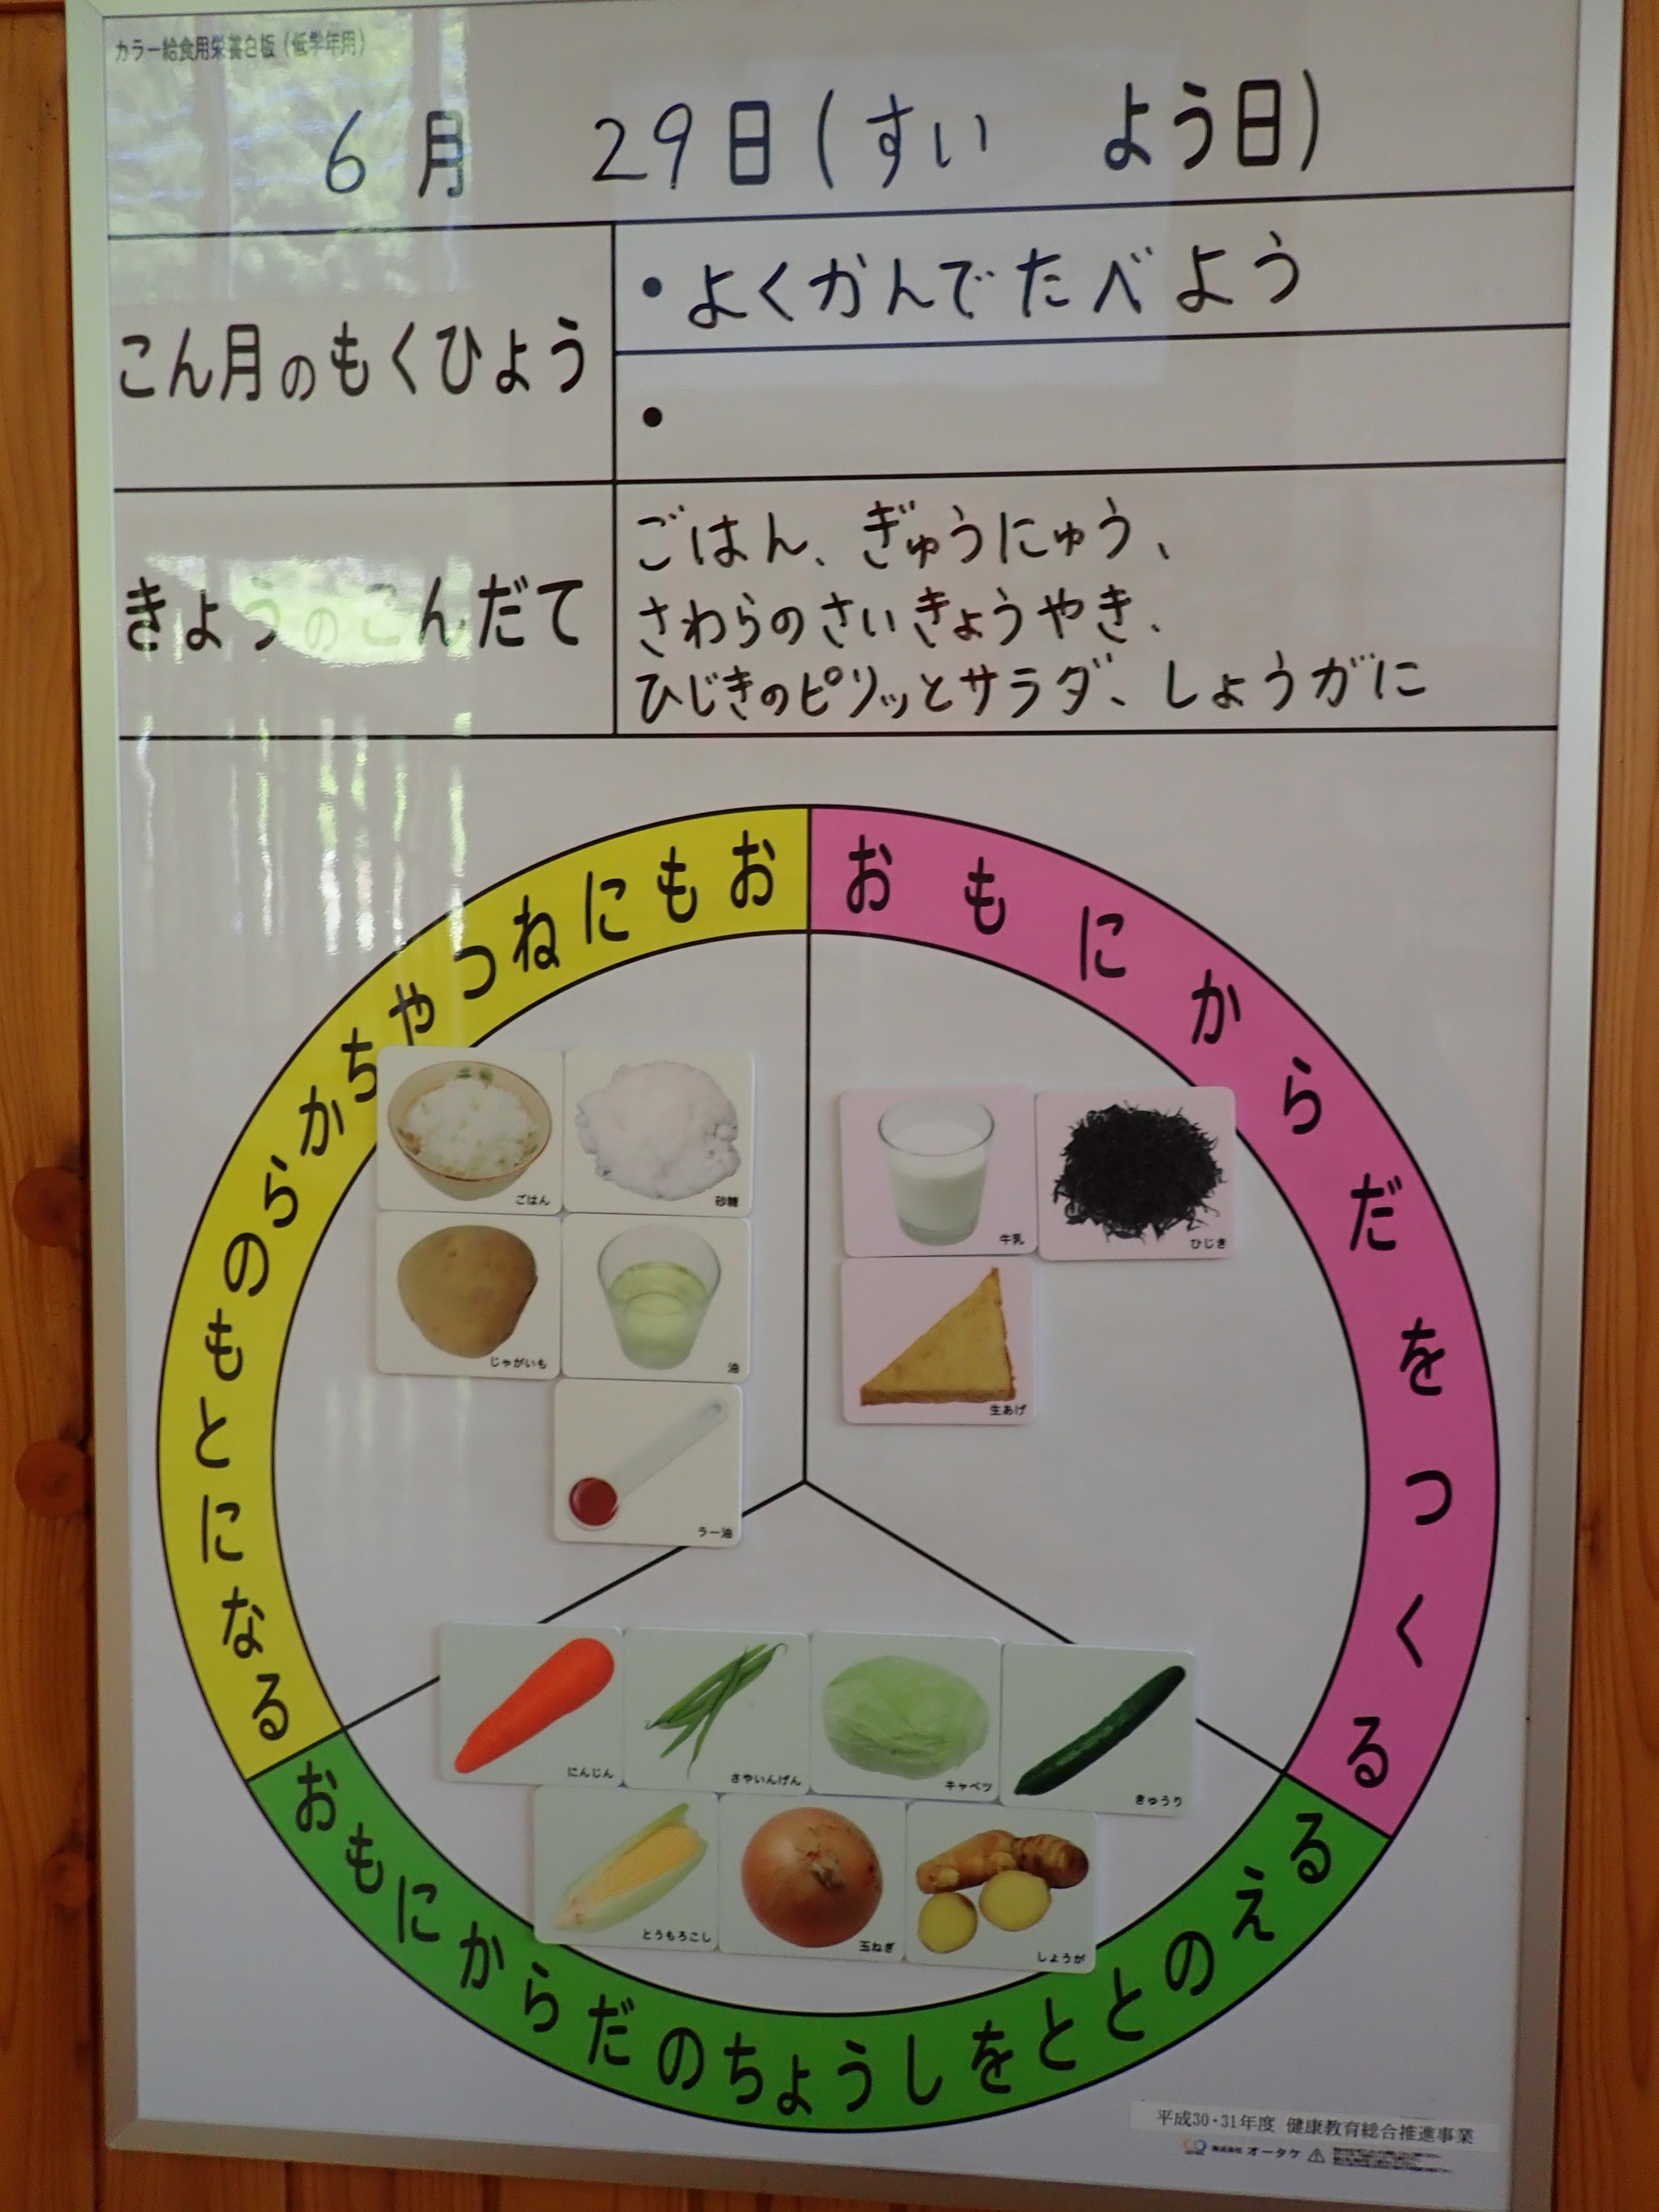 カラー給食用栄養白板（低学年用）
6月 29日(すい よう日)
こん月のもくひょう
・よくかんでたべよう
・
きょうのこんだて
ごはん、ぎゅうにゅう、
さわらのさいきょうやき、
ひじきのピリッとサラダ、しょうがに
おもにねつやちからのもとになる
おもにからだをつくる
ごはん
砂糖
じゃがいも
油
ラー油
牛乳
ひじき
生あげ
にんじん
さやいんげん
キャベツ
きゅうり
とうもろこし
玉ねぎ
しょうが
おもにからだのちょうしをととのえる
平成30・31年度 健康教育総合推進事業
株式会社 オータケ